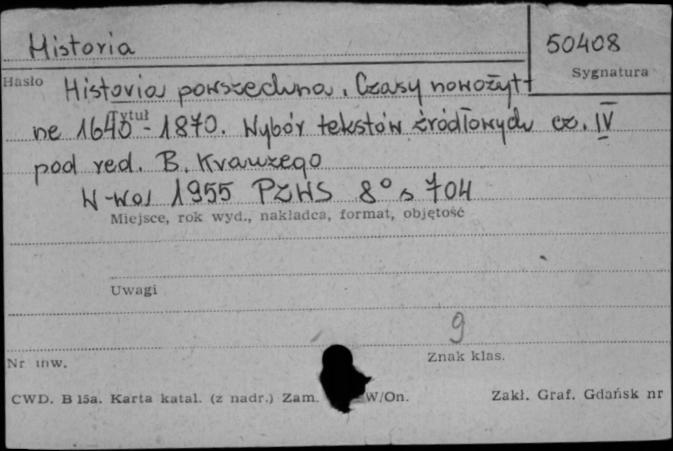 Historia
50408
Hasło
Sygnatura
Historia powszechna. Czasy nowożyt-
Tytuł
ne 1640 - 1870. Wybór tekstów źródłowych cz. IV
pod red. B. Krauzego
W-wa 1955 PZWS 8° s 704
Miejsce, rok wyd., nakładca, format, objętość
Uwagi
9
Nr inw.
Znak klas.
CWD. B 15a. Karta katal. (z nadr.) Zam. W/On.
Zakł. Graf. Gdańsk nr